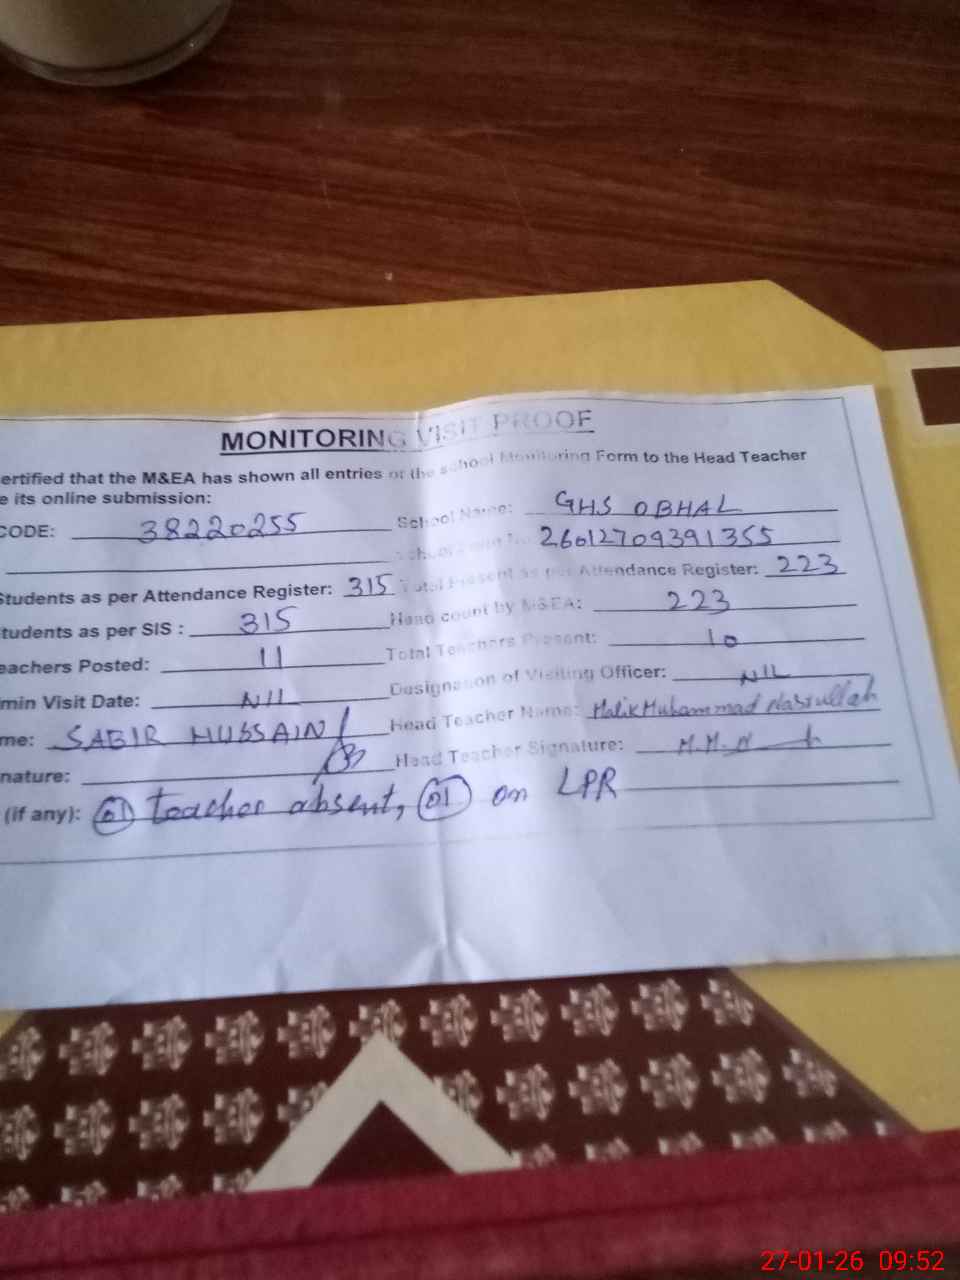 MONITORING VISIT PROOF
ertified that the M&EA has shown all entries of the school Monitoring Form to the Head Teacher
e its online submission:
CODE: 38220255 School Name: GHS OBHAL
26012709391355
Students as per Attendance Register: 315 Total Present as per Attendance Register: 223
tudents as per SIS : 315 Head count by M&EA: 223
eachers Posted: 11 Total Teachers Present: 10
min Visit Date: NIL Designation of Visiting Officer: NIL
me: SABIR HUSSAIN Head Teacher Name: Malik Muhammad Nasrullah
nature: Head Teacher Signature: M.M.N
(if any): 01 teacher absent, 01 on LPR
27-01-26 09:52